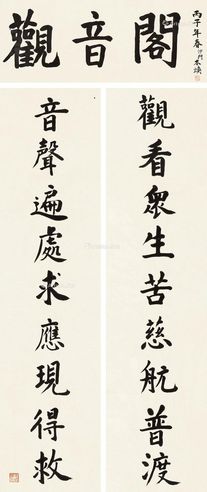 觀音閣
丙子年春沙門本煥
觀看眾生苦慈航普渡
音聲遍處求應現得救